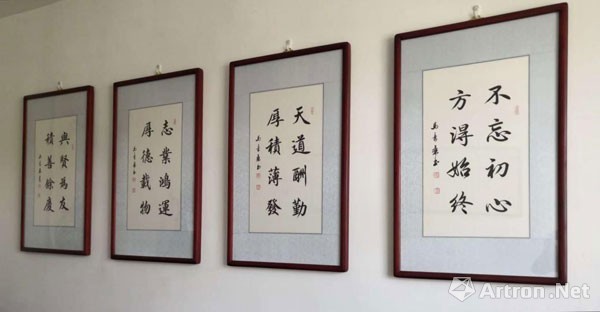 與賢為友
積善餘慶
志業鴻運
厚德載物
天道酬勤
厚積薄發
不忘初心
方得始終
Artron.Net